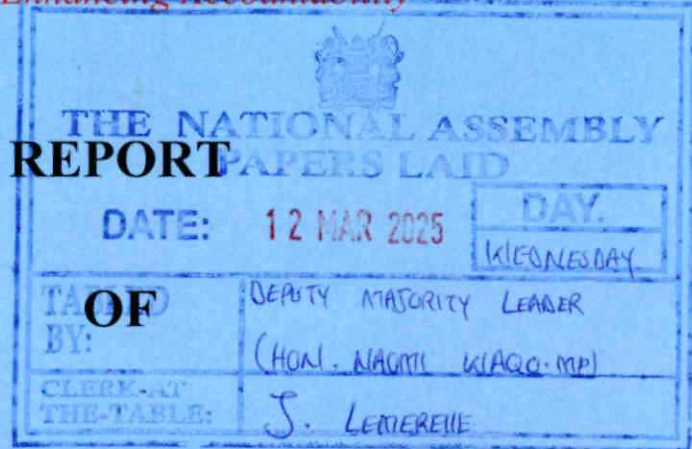 Enhancing Accountability
THE NATIONAL ASSEMBLY
REPORT
PAPERS LAID
DATE: 12 MAR 2025
DAY.
WEDNESDAY
TABLED
BY:
OF
DEPUTY MAJORITY LEADER
(HON. NAOMI WAQO. MP)
CLERK-AT
THE-TABLE:
J. LEMERELLE